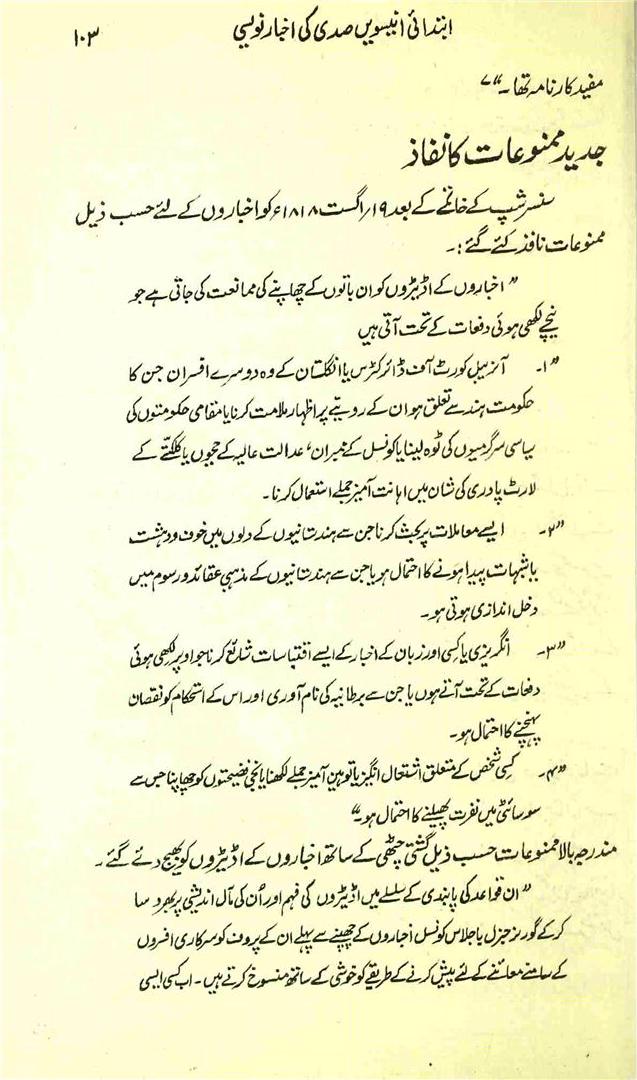 ابتدائی انیسویں صدی کی اخبار نویسی ۱۰۳
مفید کارنامہ تھا۔“ ۷
جدید ممنوعات کا نفاذ
سنسر شپ کے خاتمے کے بعد ۱۹/اگست ۱۸۱۸ء کو اخباروں کے لئے حسب ذیل
ممنوعات نافذ کئے گئے:۔
”اخباروں کے اڈیٹروں کو ان باتوں کے چھاپنے کی ممانعت کی جاتی ہے جو
نیچے لکھی ہوئی دفعات کے تحت آتی ہیں
”۱۔ آنریبل کورٹ آف ڈائرکٹرس یا انگلستان کے وہ دوسرے افسران جن کا
حکومت ہند سے تعلق ہو ان کے رویئے پر اظہار ملامت کرنا یا مقامی حکومتوں کی
سیاسی سرگرمیوں کی ٹوہ لینا یا کونسل کے ممبران، عدالت عالیہ کے ججوں یا کلکتے کے
لارٹ پادری کی شان میں اہانت آمیز جملے استعمال کرنا۔
”۲۔ ایسے معاملات پر بحث کرنا جن سے ہندستانیوں کے دلوں میں خوف و دہشت
یا شبہات پیدا ہونے کا احتمال ہو یا جن سے ہندستانیوں کے مذہبی عقائد و رسوم میں
دخل اندازی ہوتی ہو۔
”۳۔ انگریزی یا کسی اور زبان کے اخبار کے ایسے اقتباسات شائع کرنا جو اوپر لکھی ہوئی
دفعات کے تحت آتے ہوں یا جن سے برطانیہ کی نام آوری اور اس کے استحکام کو نقصان
پہنچنے کا احتمال ہو۔
”۴۔ کسی شخص کے متعلق اشتعال انگیز یا توہین آمیز جملے لکھنا یا نجی فضیحتوں کو چھاپنا جس سے
سوسائٹی میں نفرت پھیلنے کا احتمال ہو۔“
مندرجہ بالا ممنوعات حسب ذیل گشتی چٹھی کے ساتھ اخباروں کے اڈیٹروں کو بھیج دئے گئے۔
”ان قواعد کی پابندی کے سلسلے میں اڈیٹروں کی فہم اور اُن کی مآل اندیشی پر بھروسا
کر کے گورنر جنرل با جلاس کونسل اخباروں کے چھپنے سے پہلے ان کے پروف کو سرکاری افسروں
کے سامنے معائنے کے لئے پیش کرنے کے طریقے کو خوشی کے ساتھ منسوخ کرتے ہیں۔ اب کسی ایسی